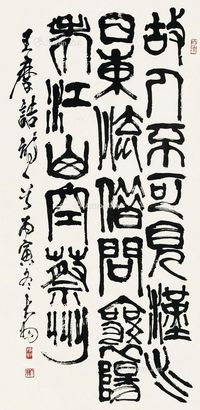 故人不可見漢水
日東流借問襄陽
老江山空蔡州
王摩詰詩一首丙寅冬